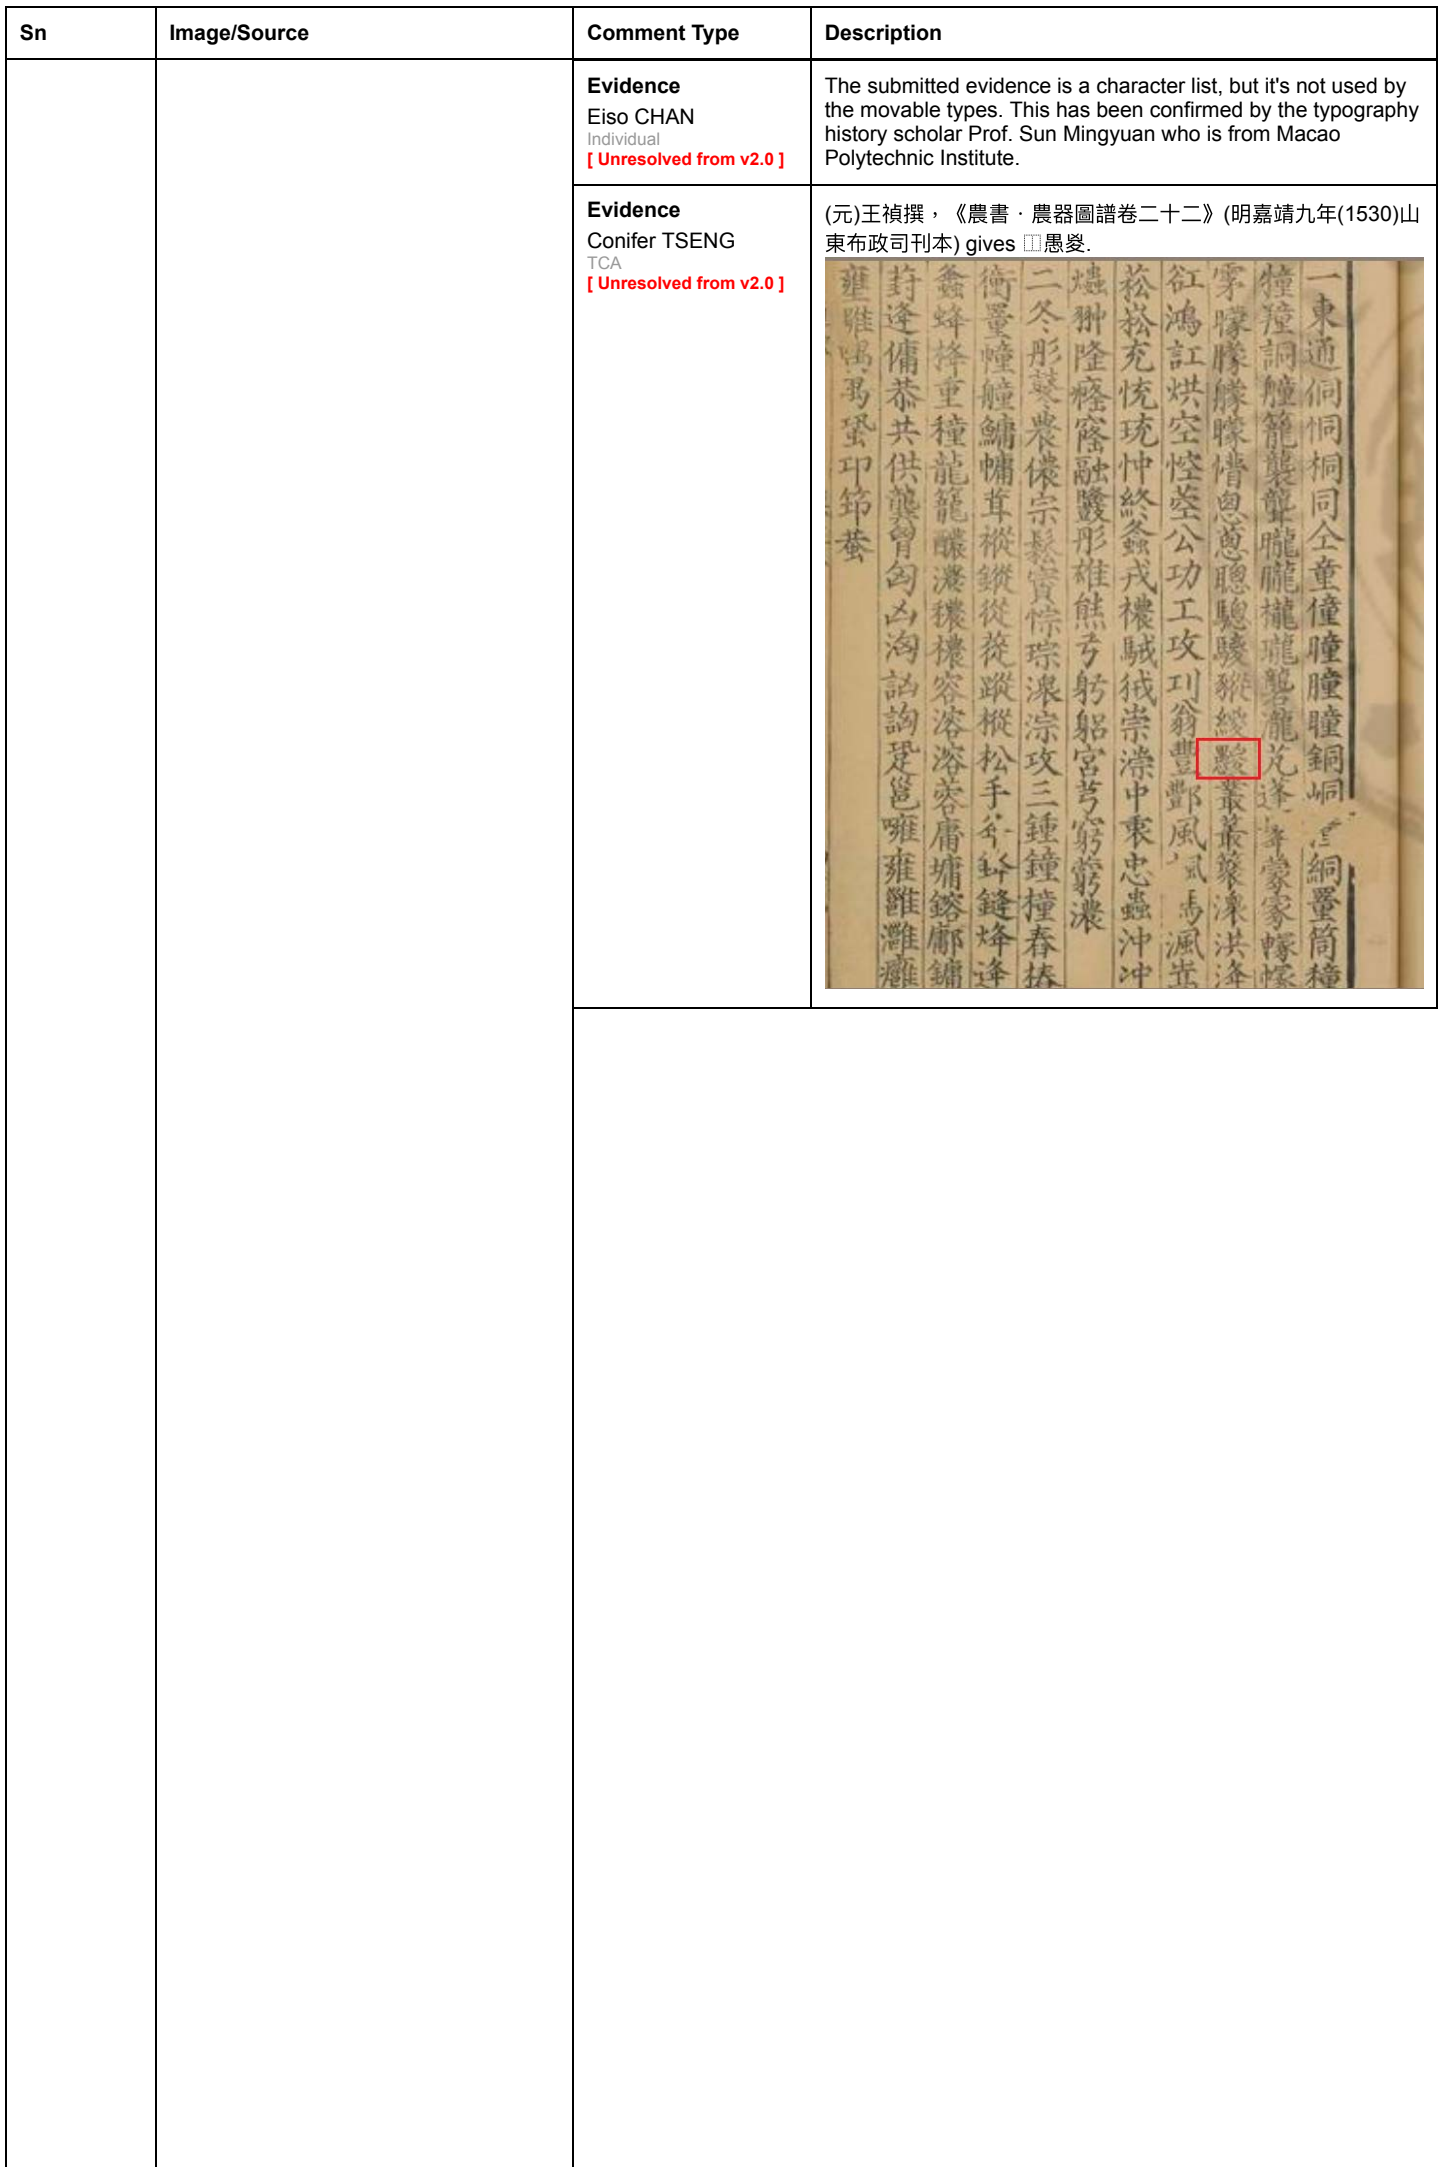 Sn
Image/Source
Comment Type
Description
Evidence
Eiso CHAN
Individual
[ Unresolved from v2.0 ]
The submitted evidence is a character list, but it's not used by
the movable types. This has been confirmed by the typography
history scholar Prof. Sun Mingyuan who is from Macao
Polytechnic Institute.
Evidence
Conifer TSENG
TCA
[ Unresolved from v2.0 ]
(元)王禎撰，《農書‧農器圖譜卷二十二》(明嘉靖九年(1530)山
東布政司刊本) gives ⿰愚㚇.
一東通侗恫桐同仝童僮瞳朣曈銅峒絅筒穜
犝羵詗艟籠襲聾曨朧櫳瓏礱瀧芃逢蒙
矇艨曚懵怱蔥聰驄騣緵叢藂洪洚
訌鴻訌烘空悾崆公功工攻刊翁豐酆風馮渢
菘崧充忱珫忡終螽戎襛駥狨崇漴中衷忠蟲沖冲
爞翀隆癃窿融彤雄熊弓躬躳宮芎窮藭濃
二冬彤農儂宗鬆賨悰琮淙攻三鍾鐘橦舂摏
衝罿幢艟鱅慵茸樅鏦從蓯蹤樅松手鏠烽逢
螽蜂捀重種龍籠醲濃穠襛容溶蓉庸墉鎔鄘鏞
封逢傭恭共供龔胷匈凶洶訩詾跫邕噰雍雝灉癰
壅雖蛩卭筇蛬